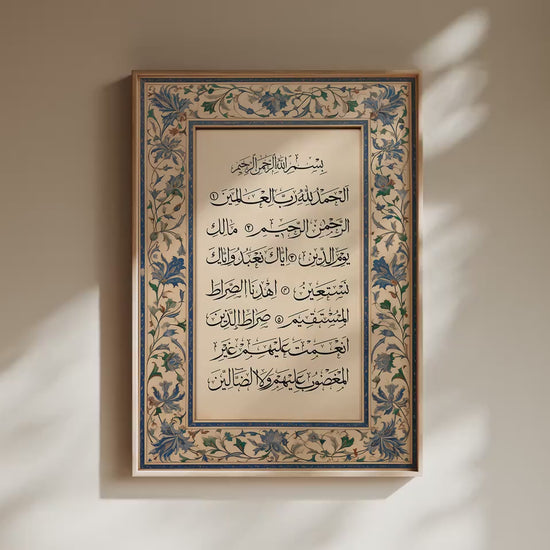 بسم الله الرحمن الرحيم
الحمد لله رب العالمين ١
الرحمن الرحيم ٢ مالك
يوم الدين ٣ اياك نعبد واياك
نستعين ٤ اهدنا الصراط
المستقيم ٥ صراط الذين
انعمت عليهم غير
المغضوب عليهم ولا الضالين